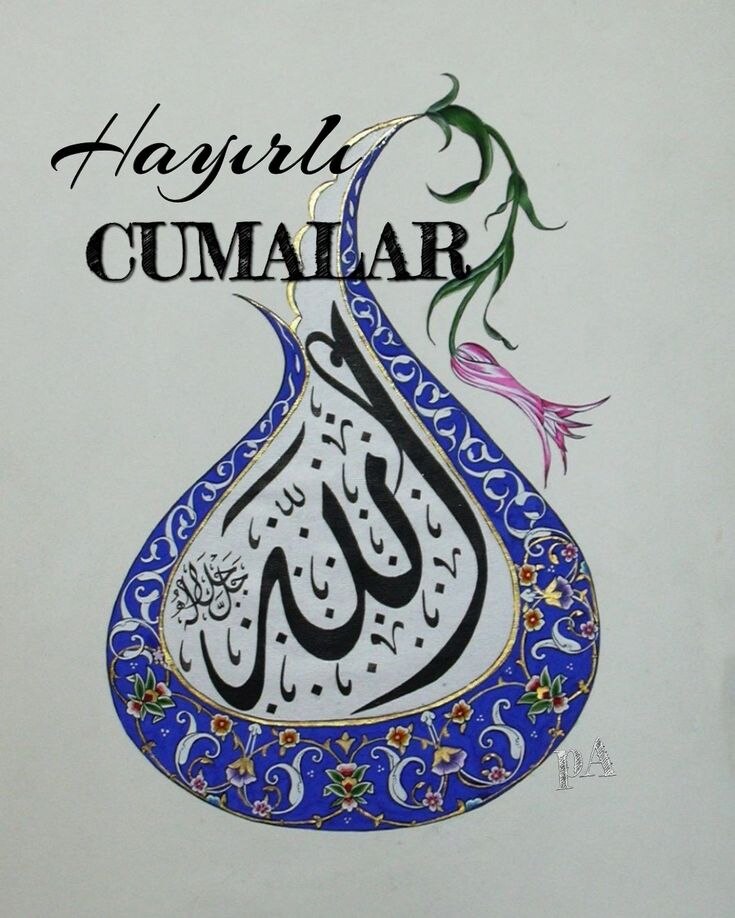 Hayırlı
CUMALAR
الله
جل جلاله
pA